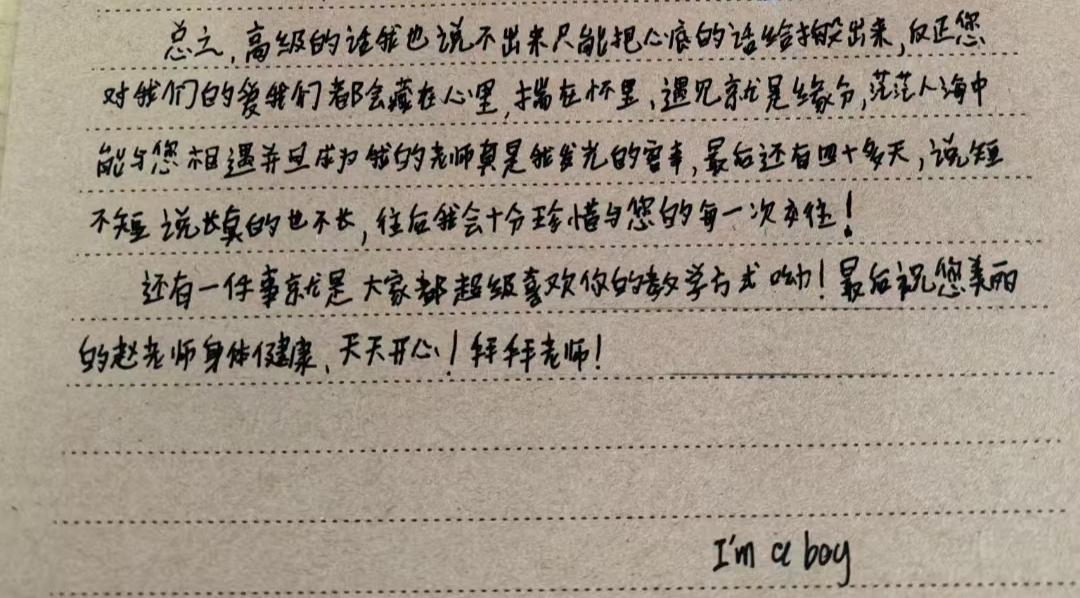 总之,高级的话我也说不出来只能把心底的话给掏出来,反正您
对我们的爱我们都会藏在心里,揣在怀里,遇见就是缘分,茫茫人海中
能与您相遇并且成为我的老师真是我发光的幸事,最后还有四十多天,说短
不短说长真的也不长,往后我会十分珍惜与您的每一次交往!
还有一件事就是大家都超级喜欢你的教学方式呦!最后祝您美丽
的赵老师身体健康、天天开心!拜拜老师!
I'm a boy